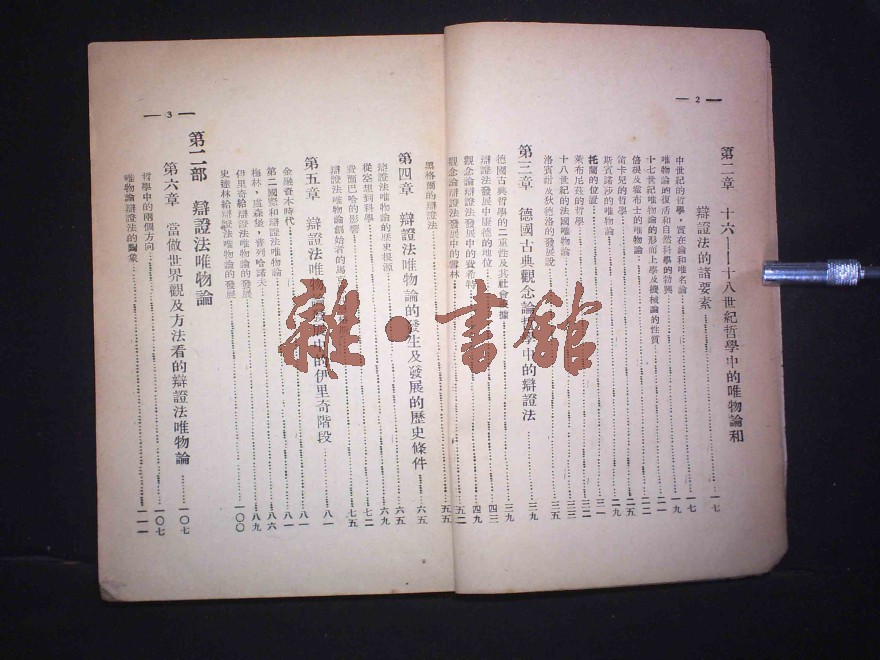 — 2 —
第二章 十六——十八世紀哲學中的唯物論和
辯證法的諸要素……一七
中世紀的哲學,實在論和唯名論……一七
唯物論的復活和自然科學的勃興……一九
十七世紀唯物論的形而上學及機械論的性質……二一
倍根及霍布士的唯物論……二二
笛卡兒的哲學……二五
斯賓諾沙的唯物論……二九
托蘭的位置……三一
萊布尼茲的哲學……三二
十八世紀的法國唯物論……三三
洛賓諾及狄德洛的發展說……三五
第三章 德國古典觀念論哲學中的辯證法……三九
德國古典哲學的二重性及其社會根據……三九
辯證法發展中康德的地位……四三
觀念論辯證法發展中的費希特……四九
觀念論辯證法發展中的雪林……五二
黑格爾的辯證法……五五
— 3 —
第四章 辯證法唯物論的發生及發展的歷史條件……六五
辯證法唯物論的歷史根源……六五
從空想到科學……六九
費爾巴哈的影響……七二
辯證法唯物論創始者的馬……七五
第五章 辯證法唯物論發展中的伊里奇階段……八一
金融資本時代……八一
第二國際和辯證法唯物論……八六
梅林,盧森堡,普列哈諾夫……八九
伊里奇給辯證法唯物論的發展
史達林給辯證法唯物論的發展……一〇〇
第二部 辯證法唯物論
第六章 當做世界觀及方法看的辯證法唯物論……一〇七
哲學中的兩個方向……一〇七
唯物論辯證法的對象……一一一
雜·書舘